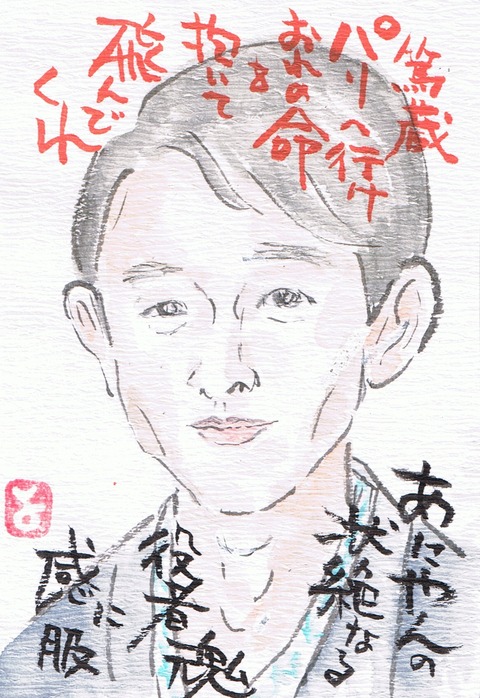 篤蔵
パリへ行け
おれの命
を
抱いて
飛んで
くれ
あにやんの
状絶なる
役者魂
に
感服
と